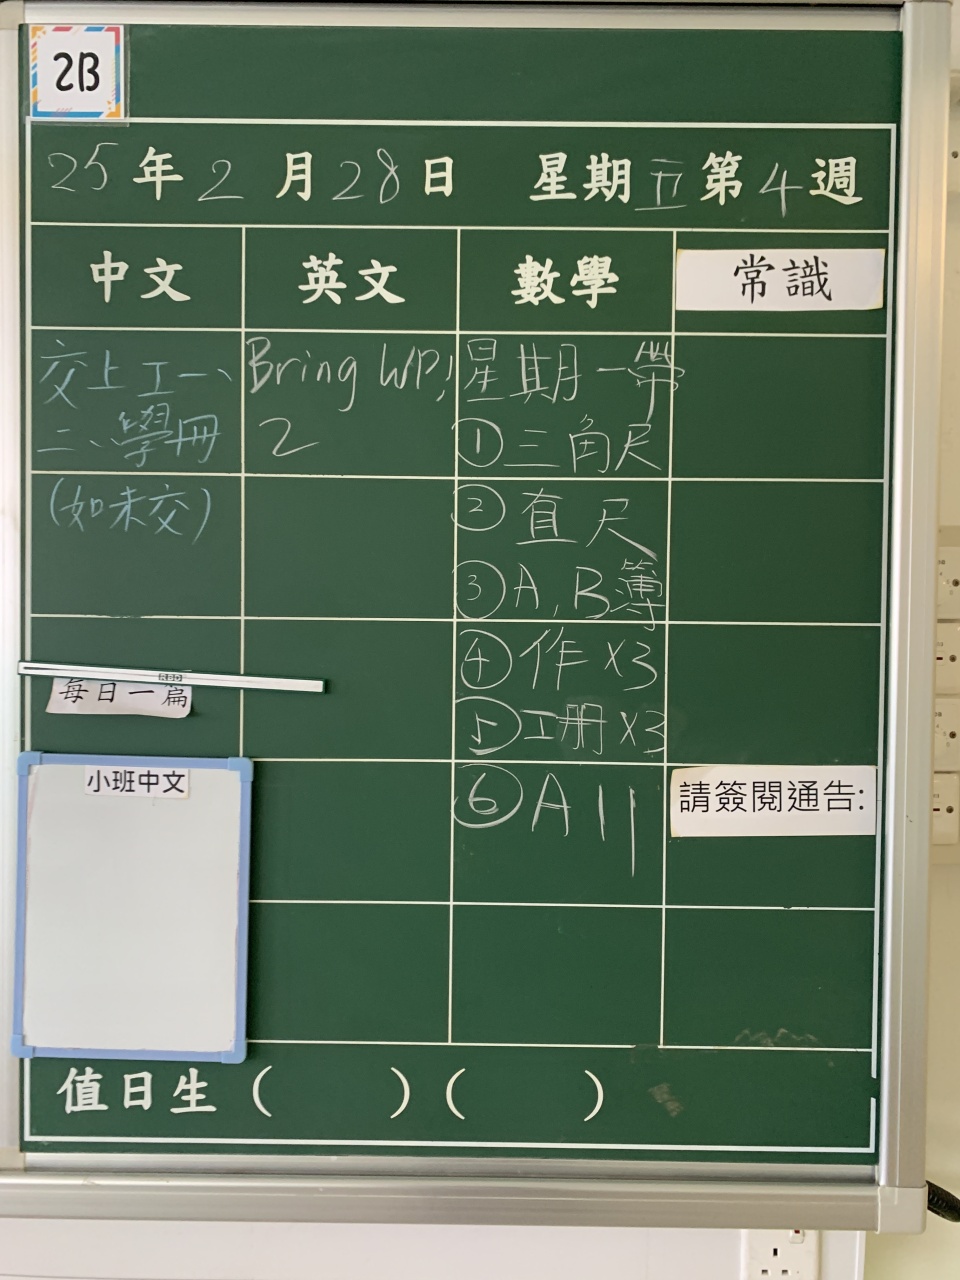 2B
25年2月28日 星期五第4週
中文 英文 數學 常識
交上工一、
二、學冊
(如未交)
每日一篇
小班中文
Bring WP1
2
星期一帶
①三角尺
②直尺
③A,B簿
④作x3
⑤工冊x3
⑥A11
請簽閱通告:
值日生( )( )